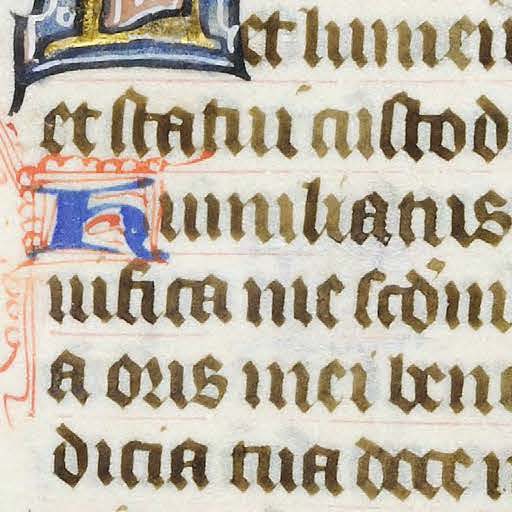 et lumen
et statui custod
Humiliatus
uifica me scdm
a oris mei bene
dicia tua doce m